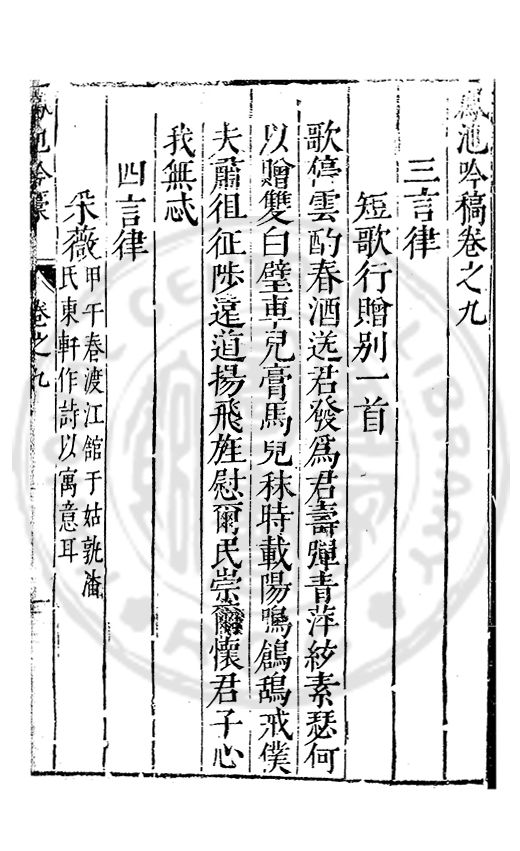 鳳池吟稿卷之九
三言律
短歌行贈别一首
歌停雲酌春酒送君發為君壽彈青萍絃素瑟何
以贈雙白璧車兒膏馬兒秣時載陽鳴鶬鴰戒僕
夫肅徂征陟遠道揚飛旌慰爾民崇爾懷君子心
我無忒
四言律
采薇甲午春渡江館于姑孰潘
氏東軒作詩以寓意耳
鳳池吟稾 卷之九 一